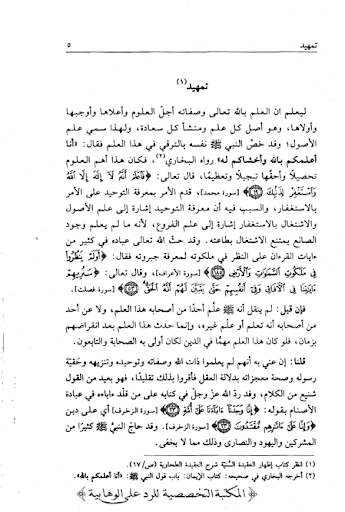 تمهيد ٥
تمهيد(١)
ليعلم ان العلم بالله تعالى وصفاته أجلّ العلوم وأعلاها وأوجبها
وأولاها، وهو أصل كل علم ومنشأ كل سعادة، ولهذا سمي علم
الأصول؛ وقد خصّ النبي ﷺ نفسه بالترقي في هذا العلم فقال: «أنا
أعلمكم بالله وأخشاكم له» رواه البخاري(٢)، فكان هذا أهم العلوم
تحصيلًا وأحقّها تبجيلًا وتعظيمًا، قال تعالى: ﴿فَاعْلَمْ أَنَّهُ لَا إِلَهَ إِلَّا اللَّهُ
وَاسْتَغْفِرْ لِذَنبِكَ ﴿١٩﴾﴾ [سورة محمد]، قدم الأمر بمعرفة التوحيد على الأمر
بالاستغفار، والسبب فيه أن معرفة التوحيد إشارة إلى علم الأصول
والاشتغال بالاستغفار إشارة إلى علم الفروع، لأنه ما لم يعلم وجود
الصانع يمتنع الاشتغال بطاعته. وقد حثّ الله تعالى عباده في كثير من
ءايات القرءان على النظر في ملكوته لمعرفة جبروته فقال: ﴿أَوَلَمْ يَنظُرُوا
فِي مَلَكُوتِ السَّمَاوَاتِ وَالْأَرْضِ ﴿١٨٥﴾﴾ [سورة الأعراف]، وقال تعالى: ﴿سَنُرِيهِمْ
ءَايَاتِنَا فِي الْآفَاقِ وَفِي أَنفُسِهِمْ حَتَّى يَتَبَيَّنَ لَهُمْ أَنَّهُ الْحَقُّ ﴿٥٣﴾﴾ [سورة فصلت].
فإن قيل: لم ينقل أنه ﷺ علّم أحدًا من أصحابه هذا العلم، ولا عن أحد
من أصحابه أنه تعلم أو علّم غيره، وإنما حدث هذا العلم بعد انقراضهم
بزمان، فلو كان هذا العلم مهمًّا في الدين لكان أولى به الصحابة والتابعون.
قلنا: إن عني به أنهم لم يعلموا ذات الله وصفاته وتوحيده وتنزيهه وحقيّة
رسوله وصحة معجزاته بدلالة العقل فأقروا بذلك تقليدًا، فهو بعيد من القول
شنيع من الكلام، وقد ردّ الله عزّ وجلّ في كتابه على من قلّد ءاباءه في عبادة
الأصنام بقوله: ﴿إِنَّا وَجَدْنَا ءَابَاءَنَا عَلَى أُمَّةٍ ﴿٢٣﴾﴾ [سورة الزخرف] أي على دين
﴿وَإِنَّا عَلَى ءَاثَارِهِم مُّقْتَدُونَ ﴿٢٣﴾﴾ [سورة الزخرف]. وقد حاجّ النبيّ ﷺ كثيرًا من
المشركين واليهود والنصارى وذلك مما لا يخفى.
(١) انظر كتاب إظهار العقيدة السُّنيّة شرح العقيدة الطحاوية (ص/١٧).
(٢) أخرجه البخاري في صحيحه: كتاب الإيمان: باب قول النبي ﷺ: «أنا أعلمكم بالله».
﴿المكتبة التخصصية للرد على الوهابية﴾